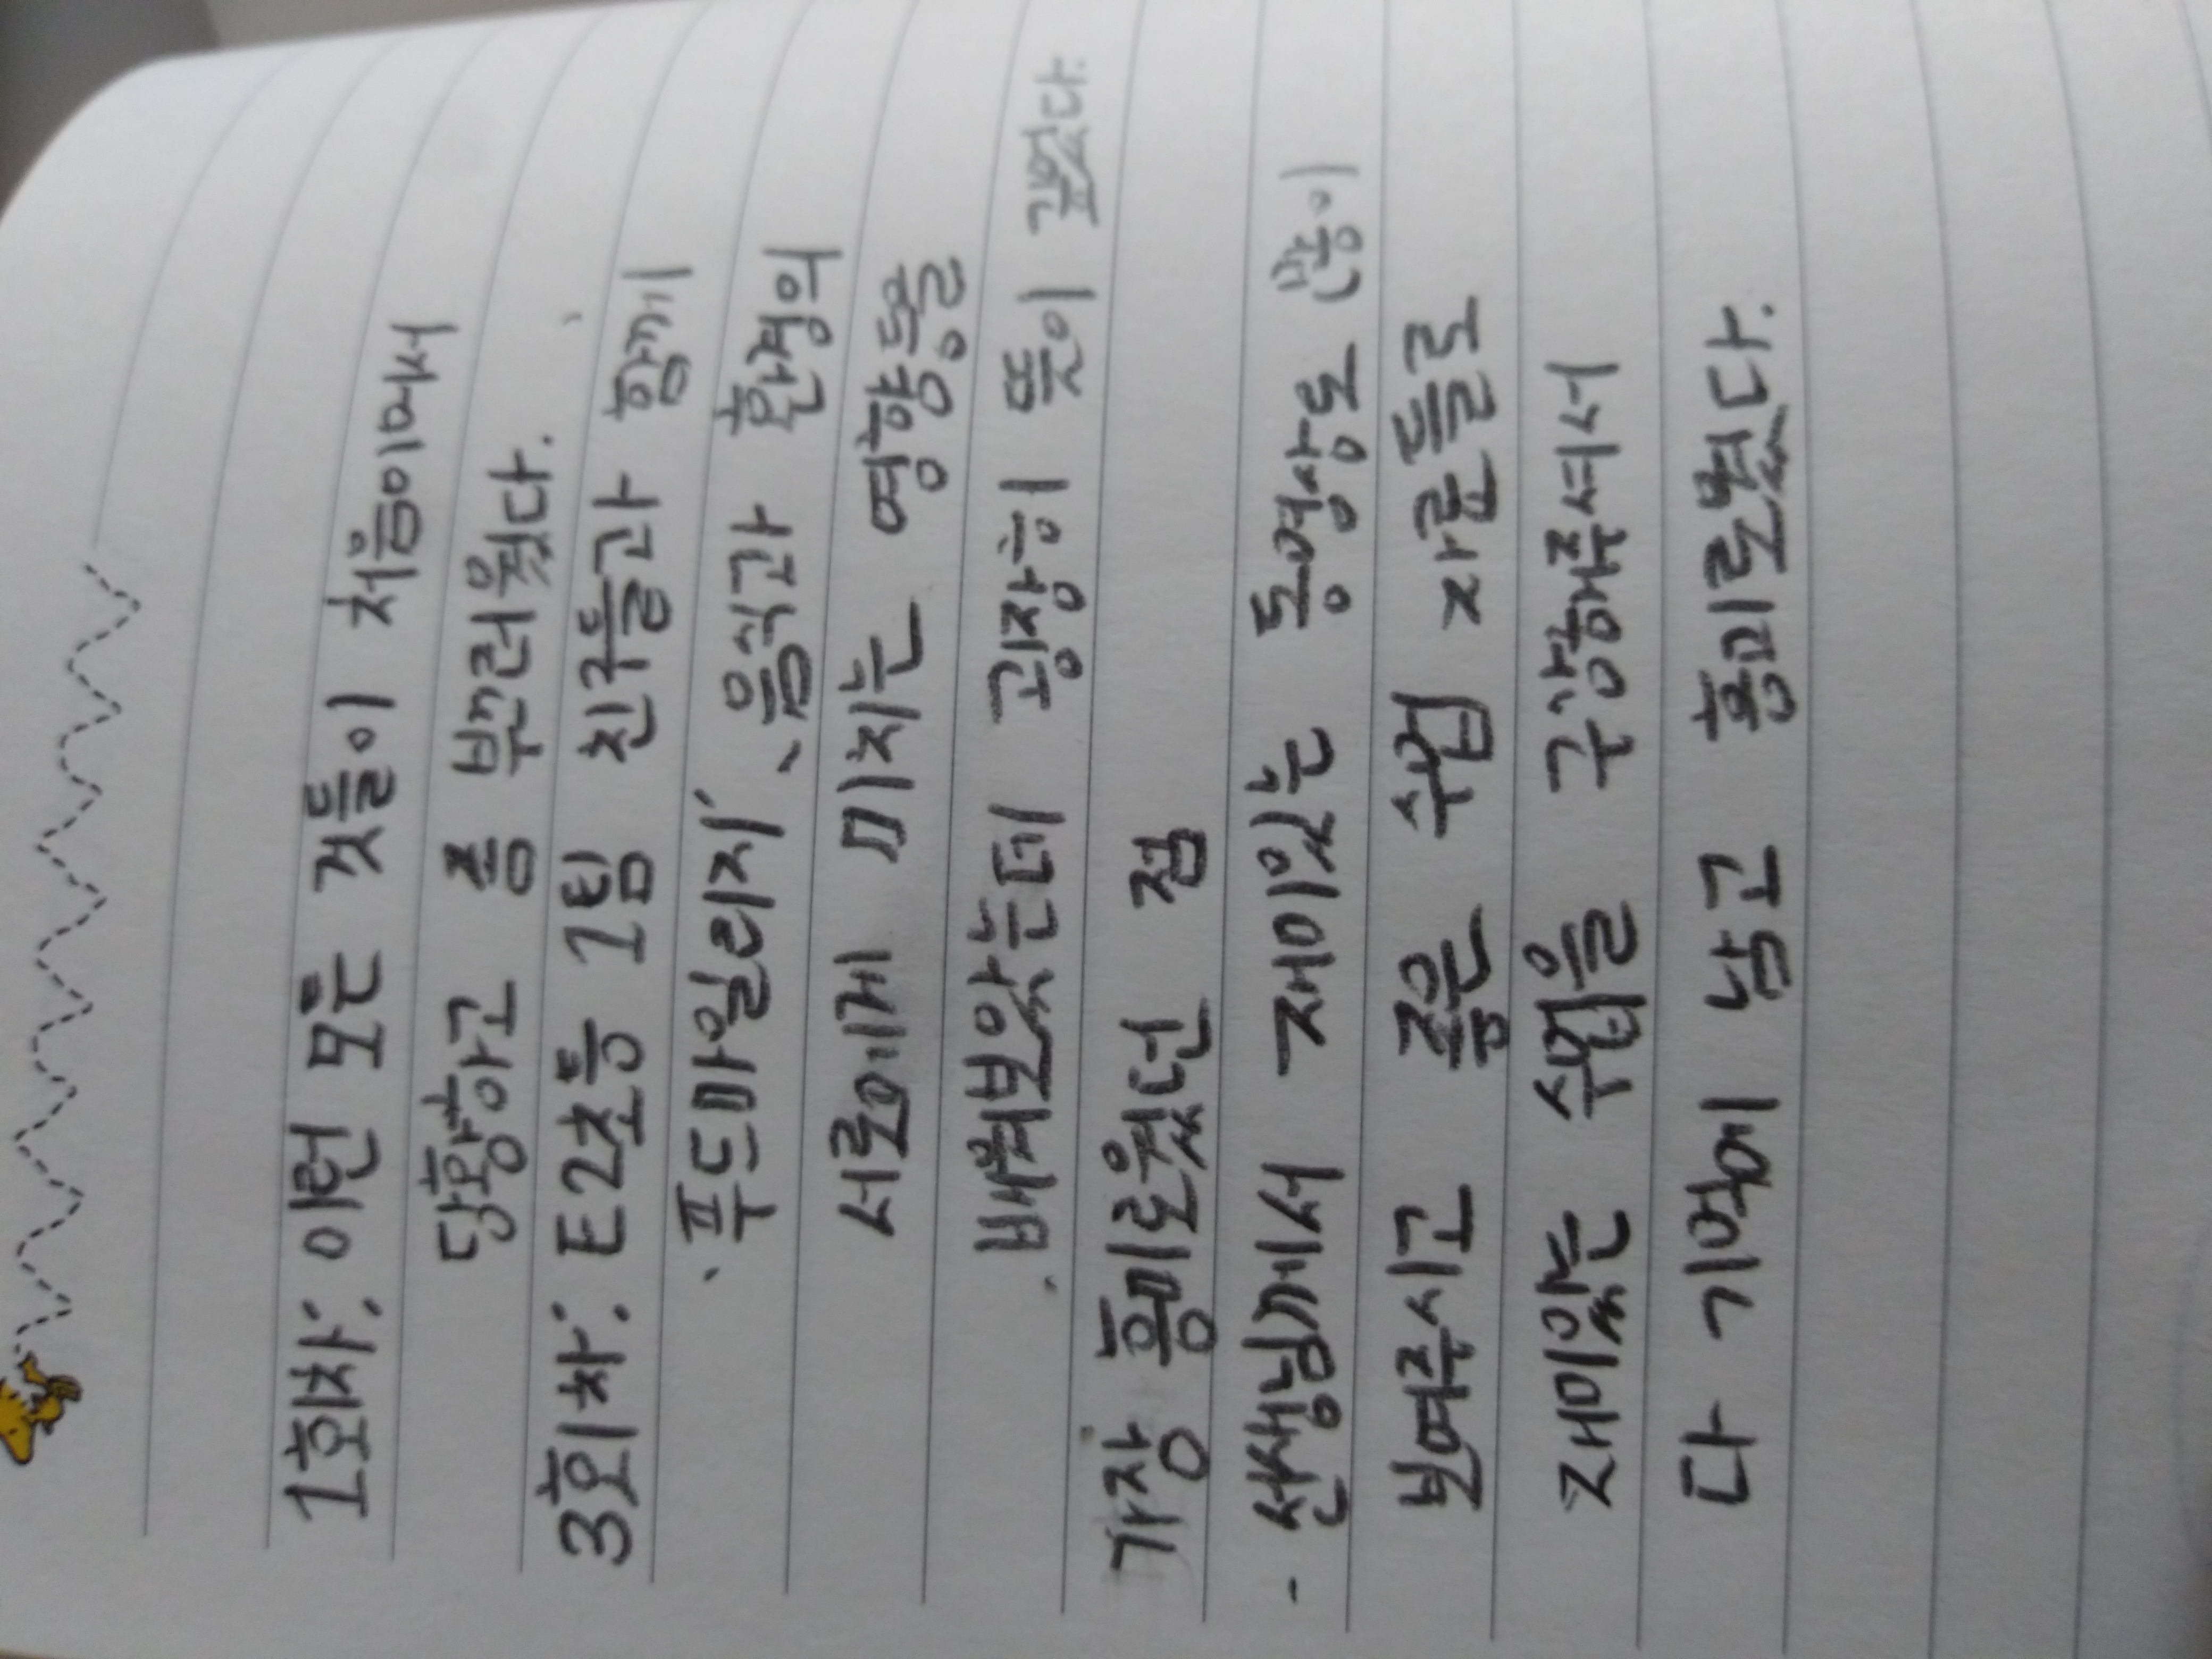 1회차: 이런 모든 것들이 처음이여서
당황하고 좀 부끄러웠다.
3회차: E2초등 1팀 친구들과 함께
'푸드마일리지', '음식과 환경의
서로에게 미치는 영향'등을
배워보았는데 굉장히 뜻이 깊었다.
가장 흥미로웠던 점
- 선생님께서 재미있는 동영상도 많이
보여주시고 좋은 수업 자료들도
재미있는 수업을 구성해주셔서
다 기억에 남고 흥미로웠다.